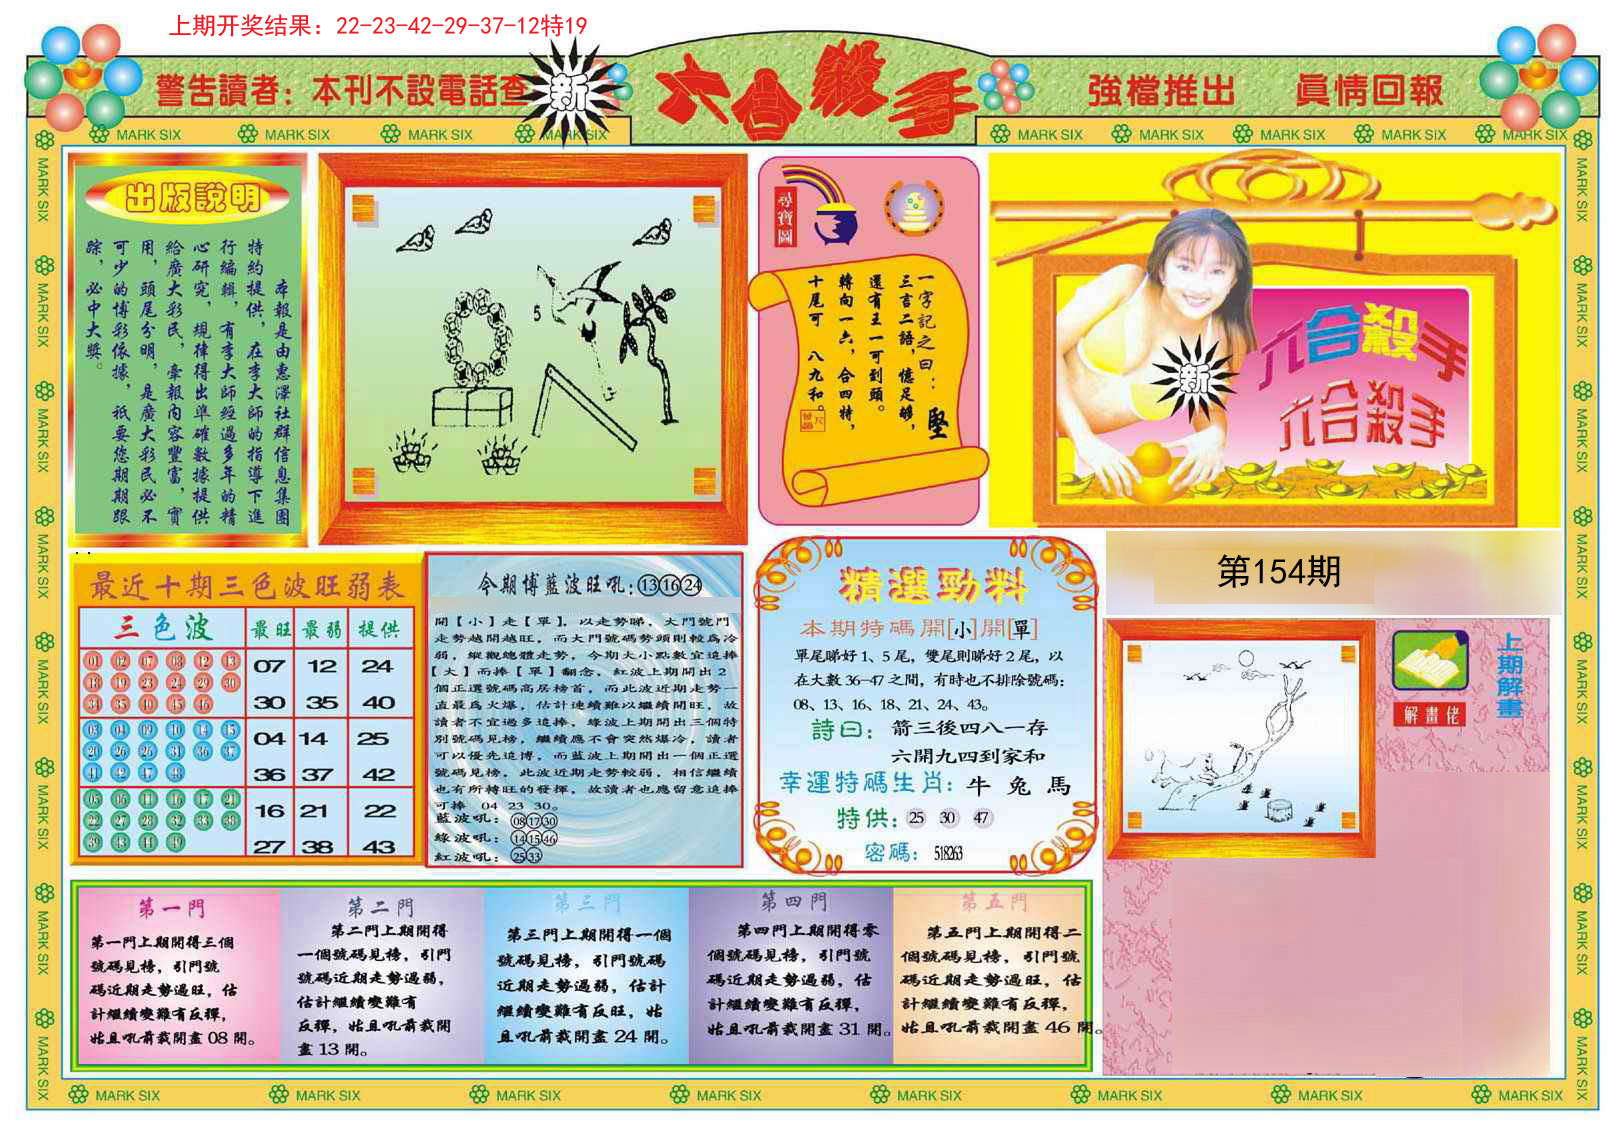 上期开奖结果：22-23-42-29-37-12特19
警告讀者：本刊不設電話查
新
六合殺手
強檔推出 真情回報
MARK SIX MARK SIX MARK SIX MARK SIX MARK SIX MARK SIX MARK SIX MARK SIX MARK SIX
出版說明
本報是由惠澤社群信息集團
特約提供，在李大師的指導下進
行編輯，有李大師經過多年的精
心研究，規律得出準確數據提供
給廣大彩民，牽報內容豐富，實
用，頭尾分明，是廣大彩民必不
可少的博彩依據，祇要您期期跟
踪，必中大獎。
5
尋寶圖
一字記之曰：堅
三言二語，憶足够，
還有王一可到頭。
轉向一六，合四特，
十尾可 八九和。
六合殺手
六合殺手
新
最近十期三色波旺弱表
三色波 最旺 最弱 提供
01 02 07 08 12 13
18 19 23 24 29 30
34 35 40 45 46
07 12 24
30 35 40
03 04 09 10 14 15
20 25 26 31 36 37
41 42 47 48
04 14 25
36 37 42
05 06 11 16 17 21
22 27 28 32 33 38
39 43 44 49
16 21 22
27 38 43
今期博藍波旺吼：13 16 24
開【小】走【單】，以走勢睇，大門號門
走勢越開越旺，而大門號碼勢頭則較爲冷
弱，縱觀總體走勢，今期大小點數宜追捧
【大】而捧【單】翻念，紅波上期開出2
個正選號碼高居榜首，而此波近期走勢一
直最爲火爆，估計連續難以繼續開旺，故
讀者不宜過多追捧，綠波上期開出三個特
別號碼見榜，繼續應不會突然爆冷，讀者
可以優先追博，而藍波上期開出一個正選
號碼見榜，此波近期走勢較弱，相信繼續
也有所轉旺的發揮，故讀者也應留意追捧
可捧 04 23 30。
藍波吼：08 17 30
綠波吼：14 15 46
紅波吼：25 33
精選勁料
本期特碼開[小]開[單]
單尾睇好1、5尾，雙尾則睇好2尾，以
在大數36-47之間，有時也不排除號碼：
08、13、16、18、21、24、43。
詩曰：箭三後四八一存
六開九四到家和
幸運特碼生肖：牛 兔 馬
特供：25 30 47
密碼：518263
第154期
上期解畫
解畫佬
第一門
第一門上期開得三個
號碼見榜，引門號
碼近期走勢過旺，估
計繼續變難有反彈，
姑且吼前裁開盡08開。
第二門
第二門上期開得
一個號碼見榜，引門
號碼近期走勢過弱，
估計繼續變難有
反彈，姑且吼前裁開
盡13開。
第三門
第三門上期開得一個
號碼見榜，引門號碼
近期走勢過弱，估計
繼續變難有反旺，姑
且吼前裁開盡24開。
第四門
第四門上期開得零
個號碼見榜，引門號
碼近期走勢過弱，估
計繼續變難有反彈，
姑且吼前裁開盡31開。
第五門
第五門上期開得二
個號碼見榜，引門號
碼近期走勢過旺，估
計繼續變難有反彈，
姑且吼前裁開盡46開。
MARK SIX MARK SIX MARK SIX MARK SIX MARK SIX MARK SIX MARK SIX MARK SIX